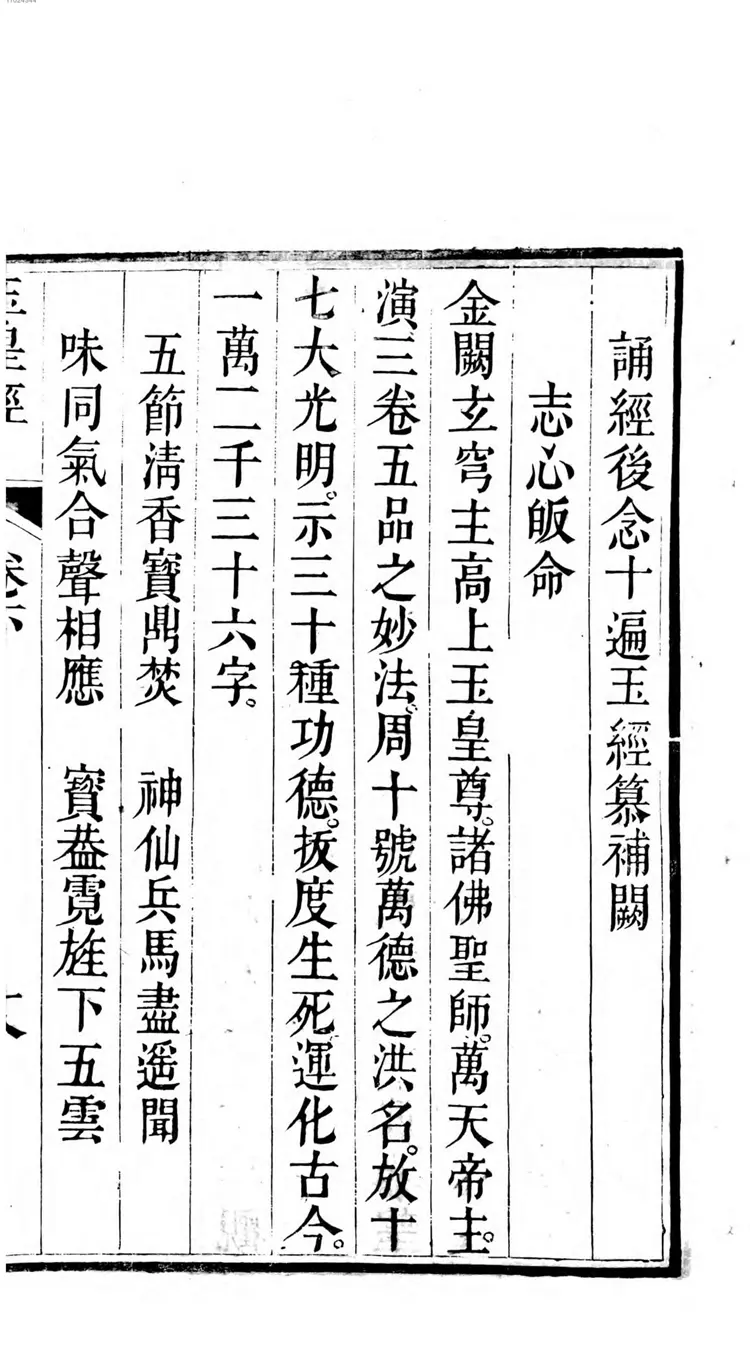 誦經後念十遍玉經纂補闕
志心皈命
金闕玄穹主高上玉皇尊。諸佛聖師。萬天帝主。
演三卷五品之妙法。周十號萬德之洪名。放十
七大光明。示三十種功德。拔度生死。運化古今。
一萬二千三十六字。
五節清香寶鼎焚　神仙兵馬盡遥聞
味同氣合聲相應　寶葢霓旌下五雲
玉皇經